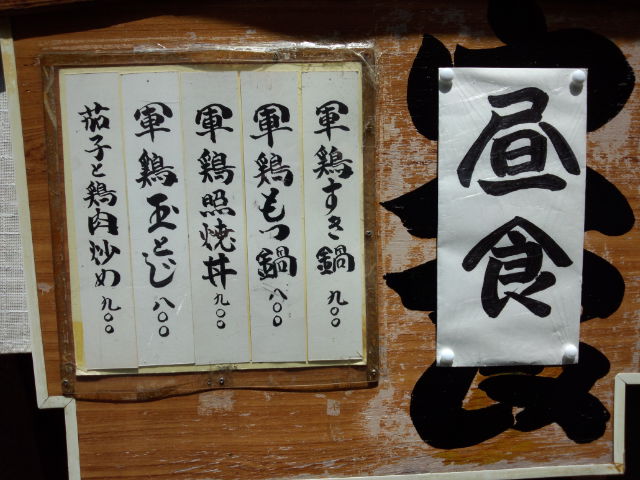 昼食
軍鶏すき鍋 九〇〇
軍鶏もつ鍋 八〇〇
軍鶏照焼丼 九〇〇
軍鶏玉とじ 八〇〇
茄子と鶏肉炒め 九〇〇